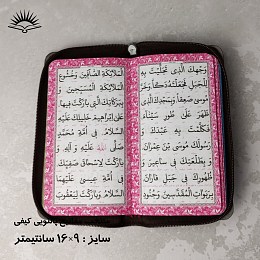 وَجْهِكَ الَّذِى تَجَلَّيْتَ بِهِ
لِلْجَبَلِ فَجَعَلْتَهُ دَكّاً وَ خَرَّ
مُوسىٰ صَعِقاً وَ بِمَجْدِكَ الَّذِى
ظَهَرَ عَلىٰ طُورِ سَيْنَاءَ
فَكَلَّمْتَ بِهِ عَبْدَكَ وَ
رَسُولَكَ مُوسَى بْنَ عِمْرَانَ
وَ بِطَلْعَتِكَ فِى سَاعِيرَ وَ
ظُهُورِكَ فِى جَبَلِ فَارَانَ
بِرَبَوَاتِ الْمُقَدَّسِينَ وَ جُنُودِ
الْمَلَائِكَةِ الصَّافِّينَ وَ خُشُوعِ
الْمَلَائِكَةِ الْمُسَبِّحِينَ وَ
بِبَرَكَاتِكَ الَّتِى بَارَكْتَ فِيهَا
عَلىٰ إِبْرَاهِيمَ خَلِيلِكَ عَلَيْهِ
السَّلَامُ فِى أُمَّةِ مُحَمَّدٍ
صَلَّى اللهُ عَلَيْهِ وَ آلِهِ وَ
بَارَكْتَ لِإِسْحَاقَ صَفِيِّكَ
فِى أُمَّةِ عِيسىٰ عَلَيْهِمَا
السَّلَامُ وَ بَارَكْتَ لِيَعْقُوبَ
پالتویی کیفی
سایز : ۹×۱۶ سانتیمتر